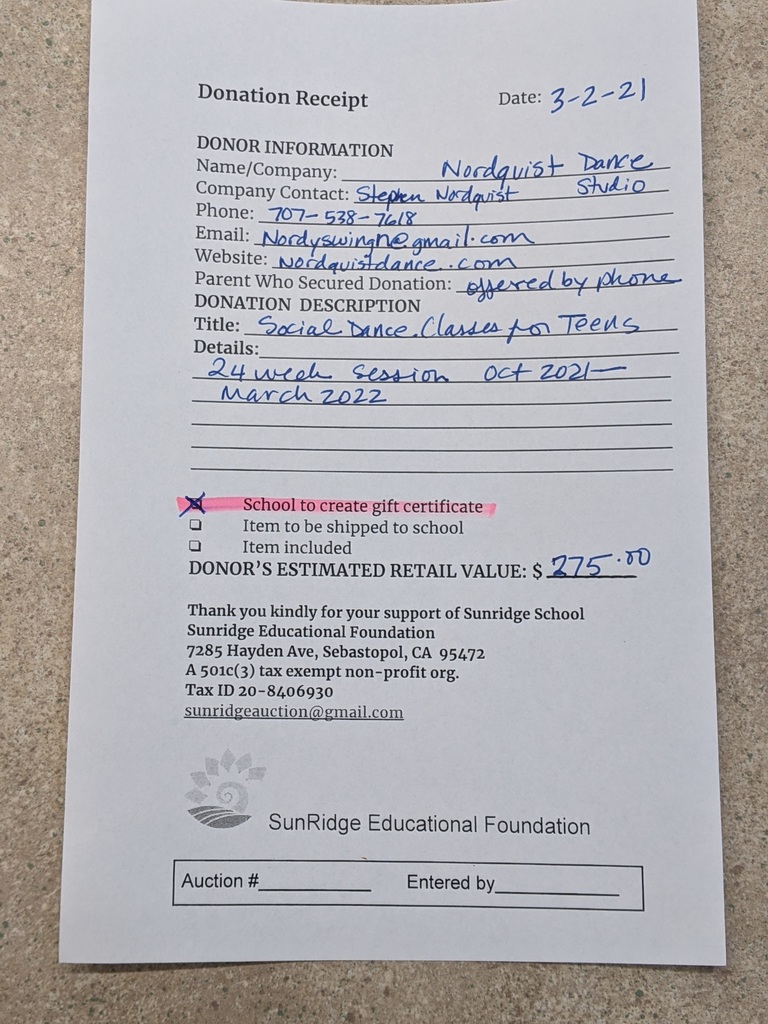 Donation Receipt Date: 3-2-21
DONOR INFORMATION
Name/Company: Nordquist Dance
Studio
Company Contact: Stephen Nordquist
Phone: 707-538-7618
Email: Nordyswingn@gmail.com
Website: nordquistdance.com
Parent Who Secured Donation: offered by phone
DONATION DESCRIPTION
Title: Social Dance Classes for Teens
Details:
24 week session Oct 2021—
March 2022
School to create gift certificate
Item to be shipped to school
Item included
DONOR'S ESTIMATED RETAIL VALUE: $ 275.00
Thank you kindly for your support of Sunridge School
Sunridge Educational Foundation
7285 Hayden Ave, Sebastopol, CA 95472
A 501c(3) tax exempt non-profit org.
Tax ID 20-8406930
sunridgeauction@gmail.com
SunRidge Educational Foundation
Auction # Entered by